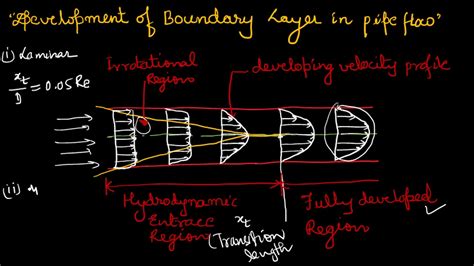 "Development of Boundary Layer in pipe flow"
(i) Laminar
x_t/D = 0.05 Re
Irrotational
Region
developing velocity profile
(ii)
Hydrodynamic
Entrace
Region
x_t
(Transition
length
Fully developed
Region